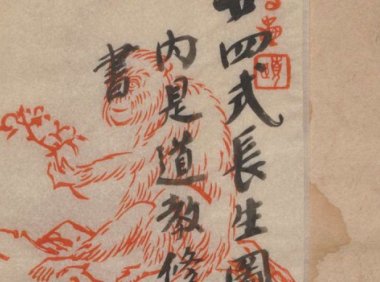 廿四式長生圖
内是道教修
書